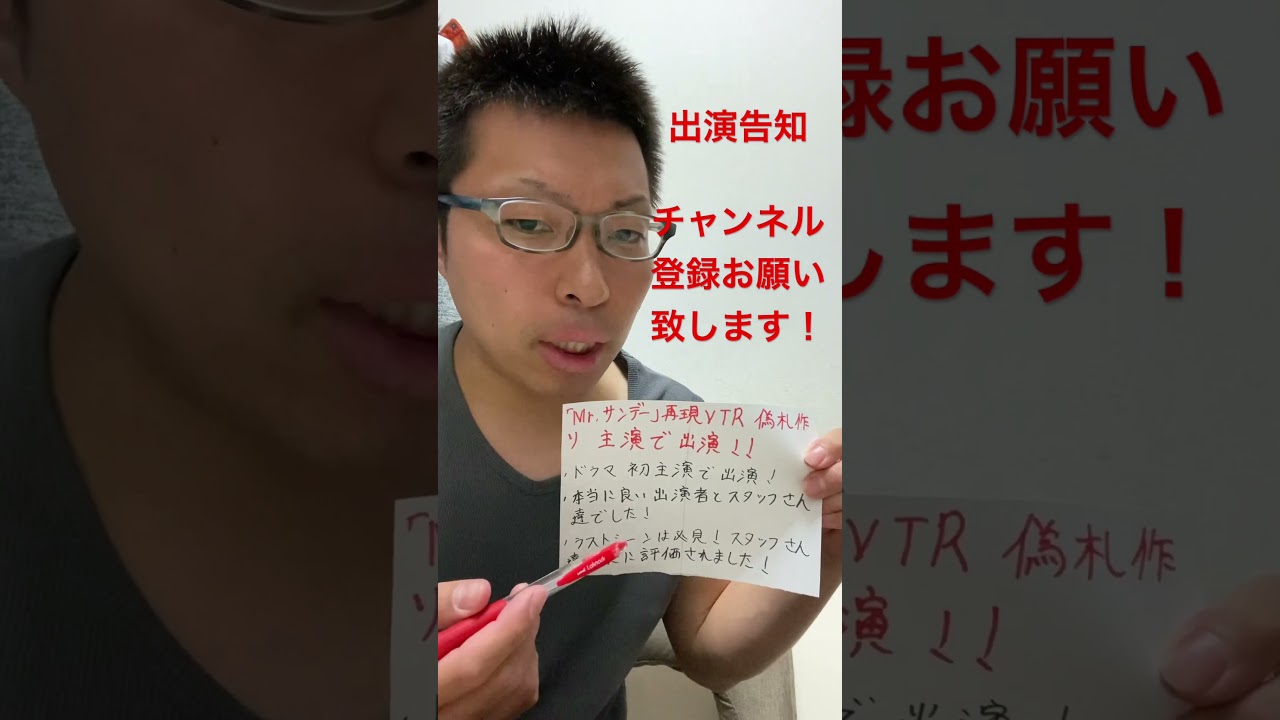 出演告知
チャンネル
登録お願い
致します！
「Mr.サンデー」再現VTR 偽札作
り 主演で出演!!
・ドラマ 初主演で出演!
・本当に良い出演者とスタッフさん
達でした!
・ラストシーンは必見! スタッフさん
に評価されました!
uni Laknock
録お願い
します！
「M
VTR 偽札作
り
演!!
で出演